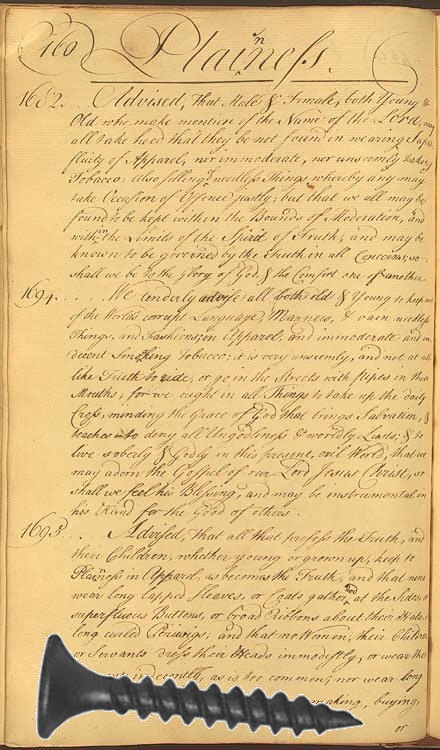 160
Plainness.
1682... Advised, That Male & Female, both Young &
Old who make mention of the Name of the Lord, may
all take heed that they be not found in wearing Supe
fluity of Apparel, nor immoderate, nor unseemly taking
Tobacco: Also selling needless Things whereby any may
take Occasion of Offence justly; but that we all may be
found to be kept within the Bounds of Moderation, and
within the Limits of the Spirit of Truth; and may be
known to be governed by the Truth in all Concerns; so
shall we be to the Glory of God, & the Comfort one of another.
1694. .... We tenderly advise all both old & Young to keep out
of the World's corrupt Language, Manners, & vain needless
Things, and Fashions in Apparel, and immoderate and in
decent Smoking Tobacco; it is very unseemly, and not at all
like Truth to ride, or go in the Streets with pipes in their
Mouths, for we ought in all Things to take up the daily
Cross, minding the Grace of God that brings Salvation, &
teaches to deny all Ungodliness & worldly Lusts, & to
live soberly & Godly in this present, evil World, that we
may adorn the Gospel of our Lord Jesus Christ, so
shall we feel his Blessing, and may be instrumental in
his Hand for the Good of others.
1695. ... Advised, That all that profess the Truth, and
their Children, whether young or grown up, keep to
Plainness in Apparel, as becomes the Truth, and that none
wear long lapped Sleeves, or Coats gathered at the Sides, or
superfluous Buttons, or broad Ribbons about their Hats, or
long curled Perriwigs, and that no Women, their Children
or Servants dress their Heads immodestly, or wear their
indecently, as is too common; nor wear long
making, buying,
or